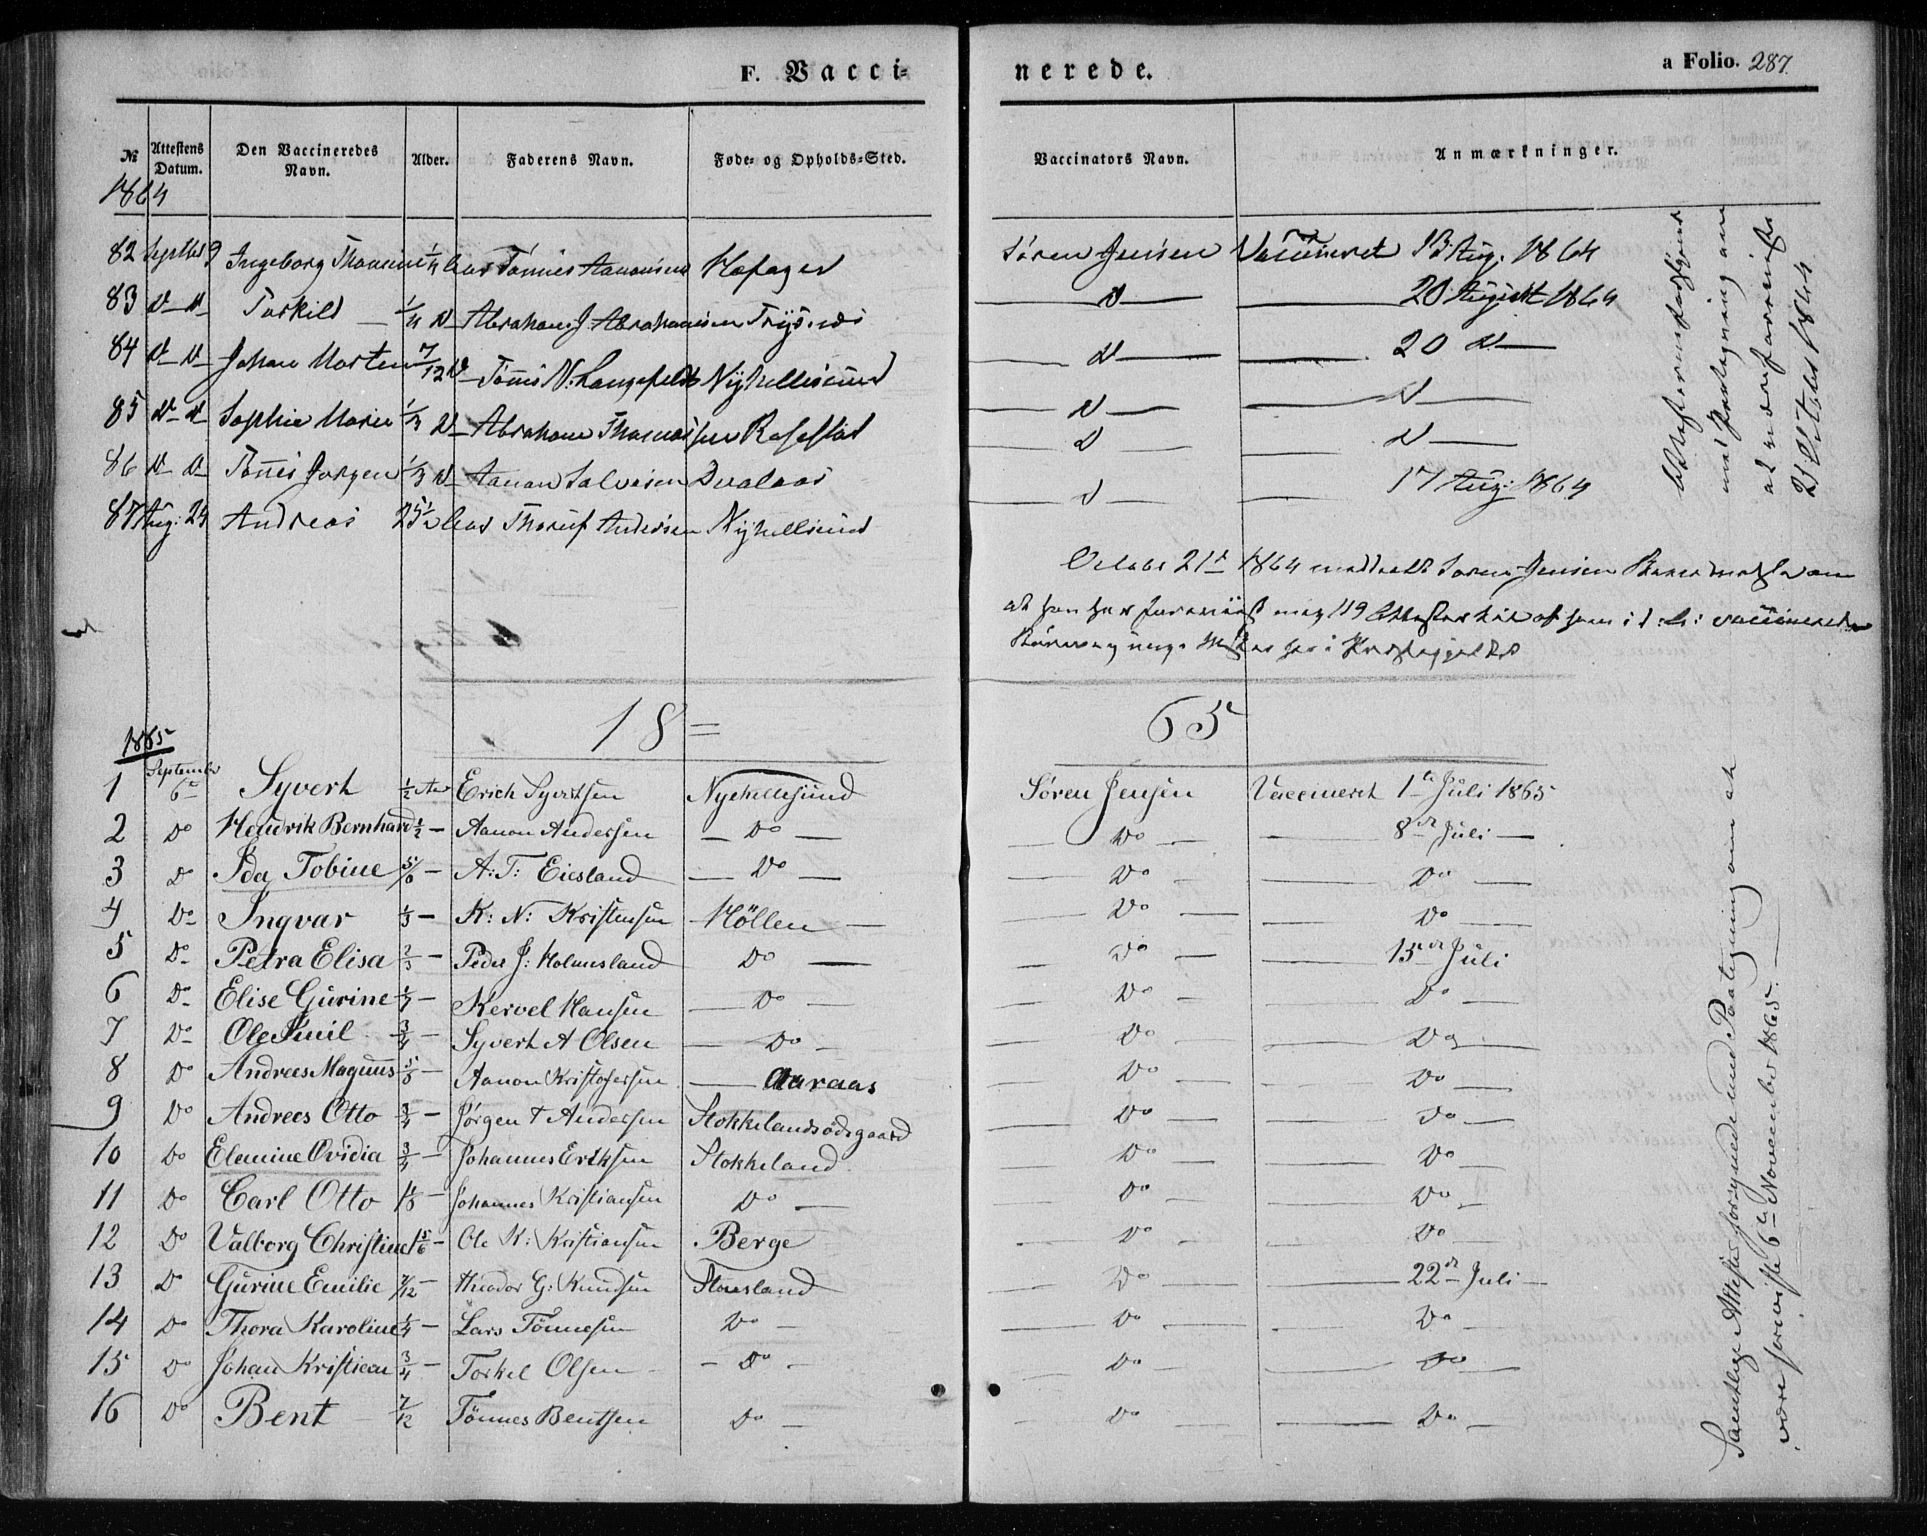 F. Vacci=
nerede.
a Folio. 287
№ Attestens Datum. Den Vaccineredes Navn. Alder. Faderens Navn. Føde= og Opholds=Sted. Vaccinators Navn. Anmærkninger.
1864
82 Septbr 9 Ingeborg Thomine 1/4 Aar Tønnes Aanonsen Søren Jensen Vaccineret 13 Aug. 1864
83 D D Torkild 1/4 D Abraham J Abrahamsen Trysnes D 20 August 1864
84 D D Johan Morten 7/12 D Tønnes N. Langefeldt Nyhellesund D 20 D
85 D D Sophie Marie 1/3 D Abraham Thomassen Rosestad D D
86 D D Tønnes Jørgen 1/3 D Aanon Salvesen Dvalaas D D
87 Aug: 24 Andreas 25 1/2 Aar Andersen Nyhellesund D 17 Aug: 1864
Attesterne forsynede
med Paategning om
at være foreviste
21 October 1864
October 21d 1864 meddeelt Søren Jensen
at han har forevist mig 119 Attester vaccinerede
i Præstegjeldet
18=
65
1865
1 September 6te Syvert 1/2 Aar Erich Syvertsen Nyehellesund Søren Jensen Vaccineret 1te Juli 1865
2 Do Hendrik Bernhard 1/2 — Aanon Andersen — Do — Do — 8de Juli —
3 Do Ida Tobine 5/6 — A: T: Eiesland — Do — Do — Do —
4 Do Ingvar 1/3 — K: N: Kristensen Höllen — Do — Do —
5 Do Petra Elisa 2/3 — Peder J: Holmesland Do — Do — 15de Juli
6 Do Elise Gurine 1/4 — Kervel Hansen — Do — Do — Do —
7 Do Ole Emil 3/4 — Syvert A Olsen — Do — Do — Do —
8 Do Andrees Magnus 5/6 — Aanon Kristofersen — Aaraas Do — Do —
9 Do Andrees Otto 3/4 — Jørgen T Andersen Stokkelandsødegaard Do — Do —
10 Do Elemine Ovidia 3/4 — Johannes Eriksen Stokkeland Do — Do —
11 Do Carl Otto — Johannes Kristiansen Do — Do — Do —
12 Do Valborg Christine 1 5/6 — Ole K: Kristiansen Berge Do — Do —
13 Do Gurine Emilie 7/12 — Theodor G: Knudsen Stousland Do — 22de Juli —
14 Do Thora Karoline 1/4 — Lars Tönnesen Do — Do — Do —
15 Do Johan Kristiean 3/4 — Torkel Olsen — Do — Do — Do
16 Do Bent — 7/12 Tönnes Bentsen Do — Do — Do —
Samtlige Attester forsynede med Paategning om at
være foreviste 6te November 1865. —